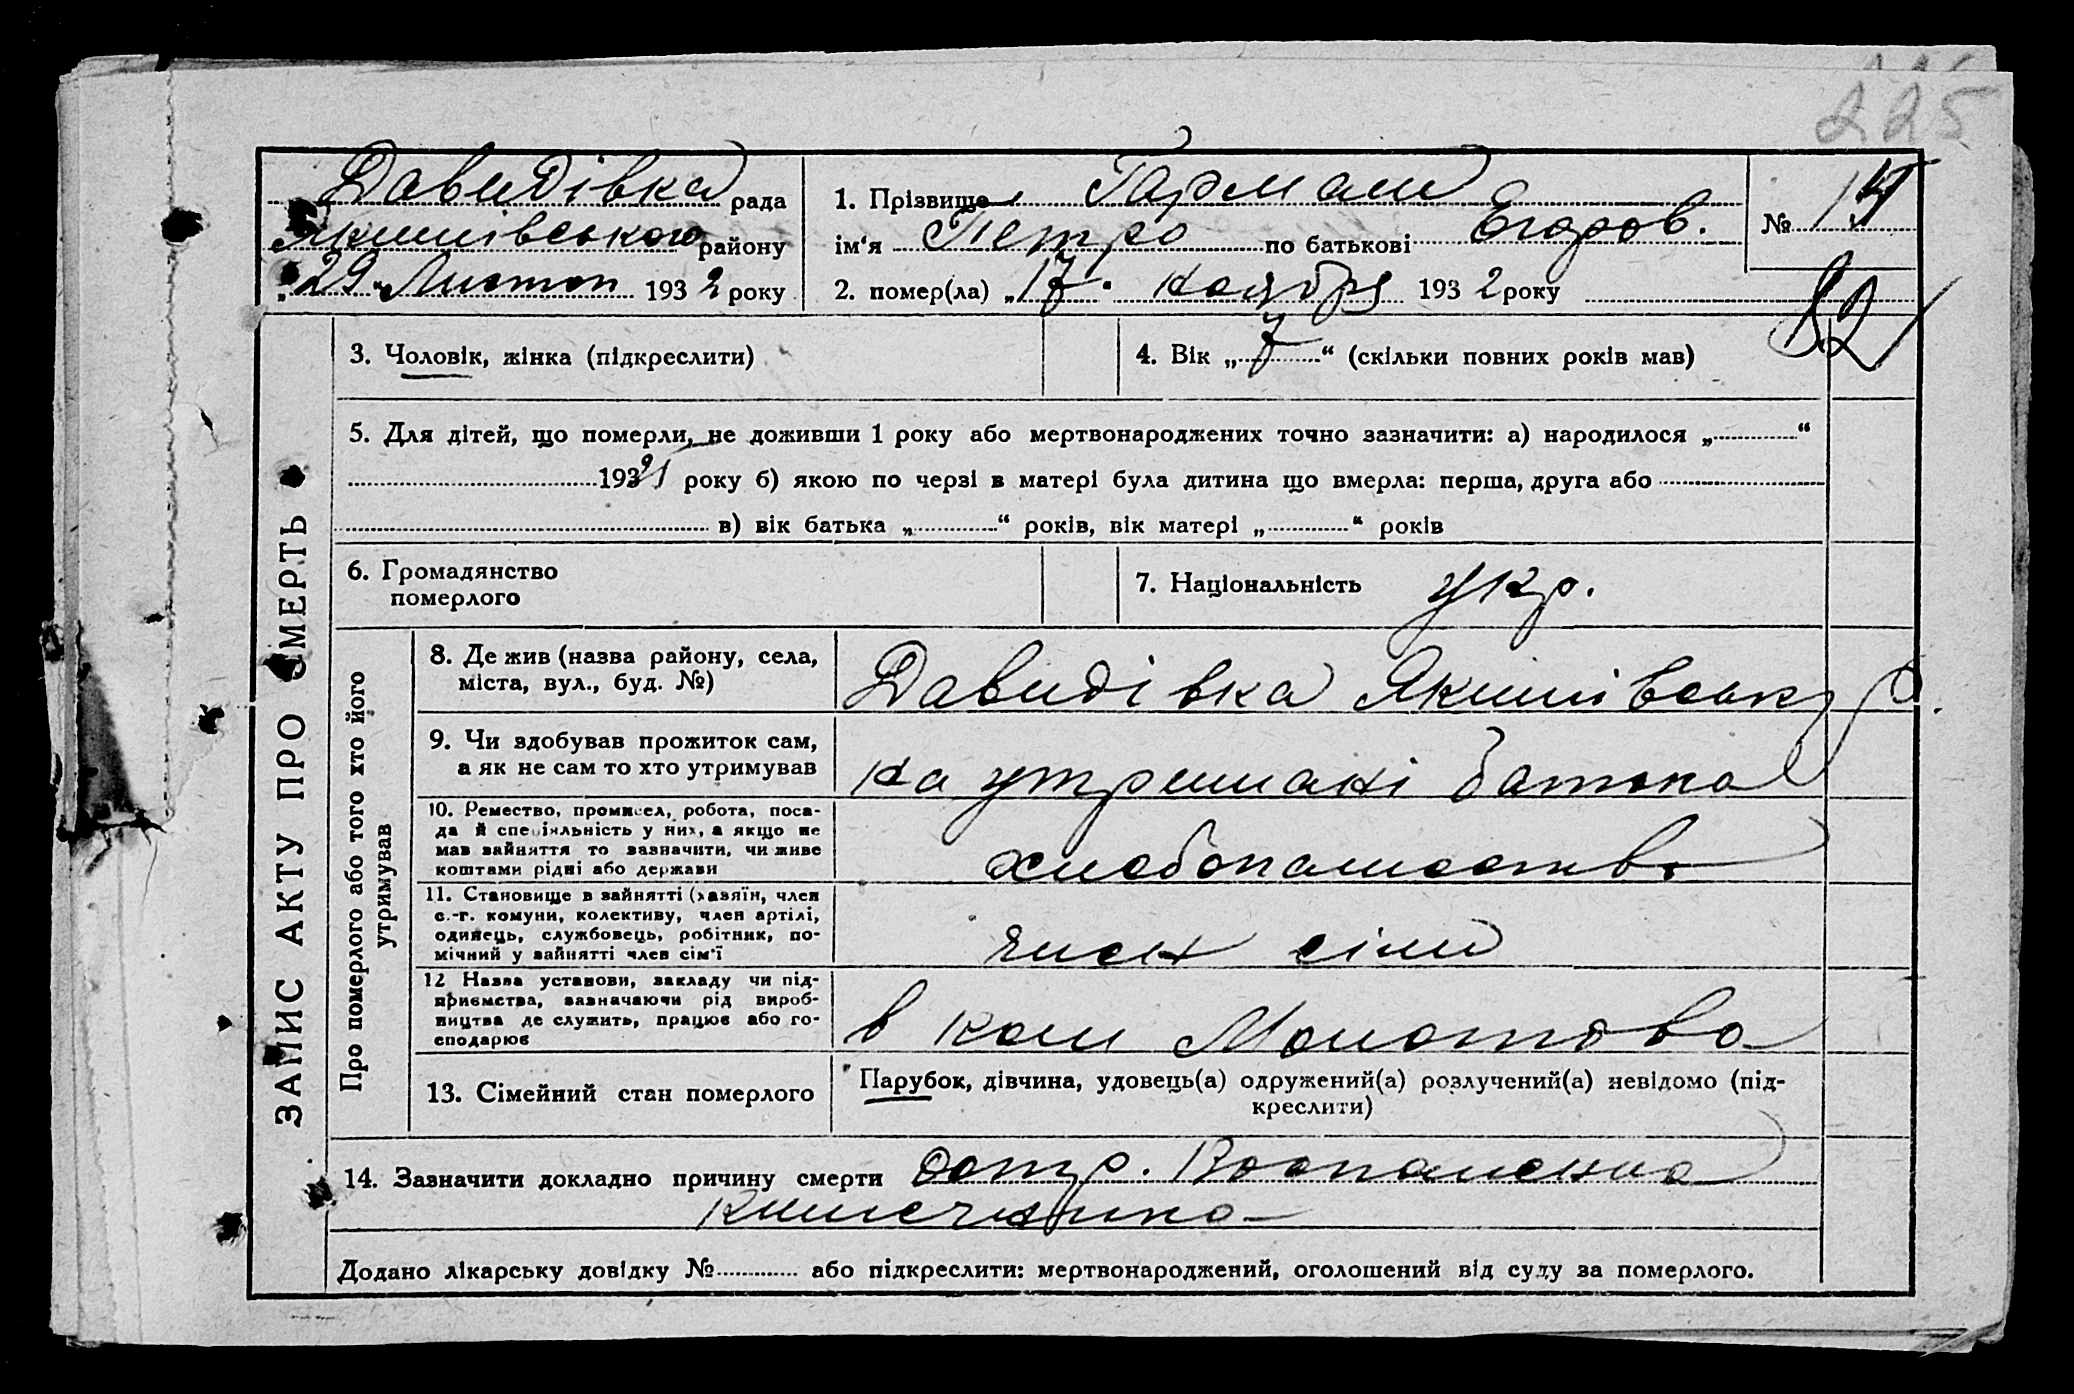 225
Давидівка рада
Якимівського району
„29“ Листоп 1932 року
1. Прізвище Гармаш
ім‘я Петро по батькові Егоров.
2. помер(ла) „17“ ноября 1932 року
№
82
3. Чоловік, жінка (підкреслити)
4. Вік „7“ (скільки повних років мав)
5. Для дітей, що померли, не доживши 1 року або мертвонароджених точно зазначити: а) народилося „ “
193 року б) якою по черзі в матері була дитина що вмерла: перша, друга або
в) вік батька „ “ років, вік матері „ “ років
6. Громадянство
померлого
7. Національність укр.
ЗАПИС АКТУ ПРО СМЕРТЬ
Про померлого або того хто його
утримував
8. Де жив (назва району, села,
міста, вул., буд. №)
Давидівка Якимівськ р.
9. Чи здобував прожиток сам,
а як не сам то хто утримував
на утримані батька
10. Ремество, промисел, робота, поса-
да й спеціяльність у них, а якщо не
мав зайняття то зазначити, чи живе
коштами рідні або держави
хлебопашество
11. Становище в зайнятті (хазяїн, член
с.-г. комуни, колективу, член артілі,
одинець, службовець, робітник, по-
мічний у зайнятті член сім‘ї
член сімї
12 Назва установи, закладу чи під-
приємства, зазначаючи рід вироб-
ництва де служить, працює або го-
сподарює
в кол Молотова
13. Сімейний стан померлого
Парубок, дівчина, удовець(а) одружений(а) розлучений(а) невідомо (під-
креслити)
14. Зазначити докладно причину смерти остр. Воспаление
кишечника
Додано лікарську довідку № або підкреслити: мертвонароджений, оголошений від суду за померлого.